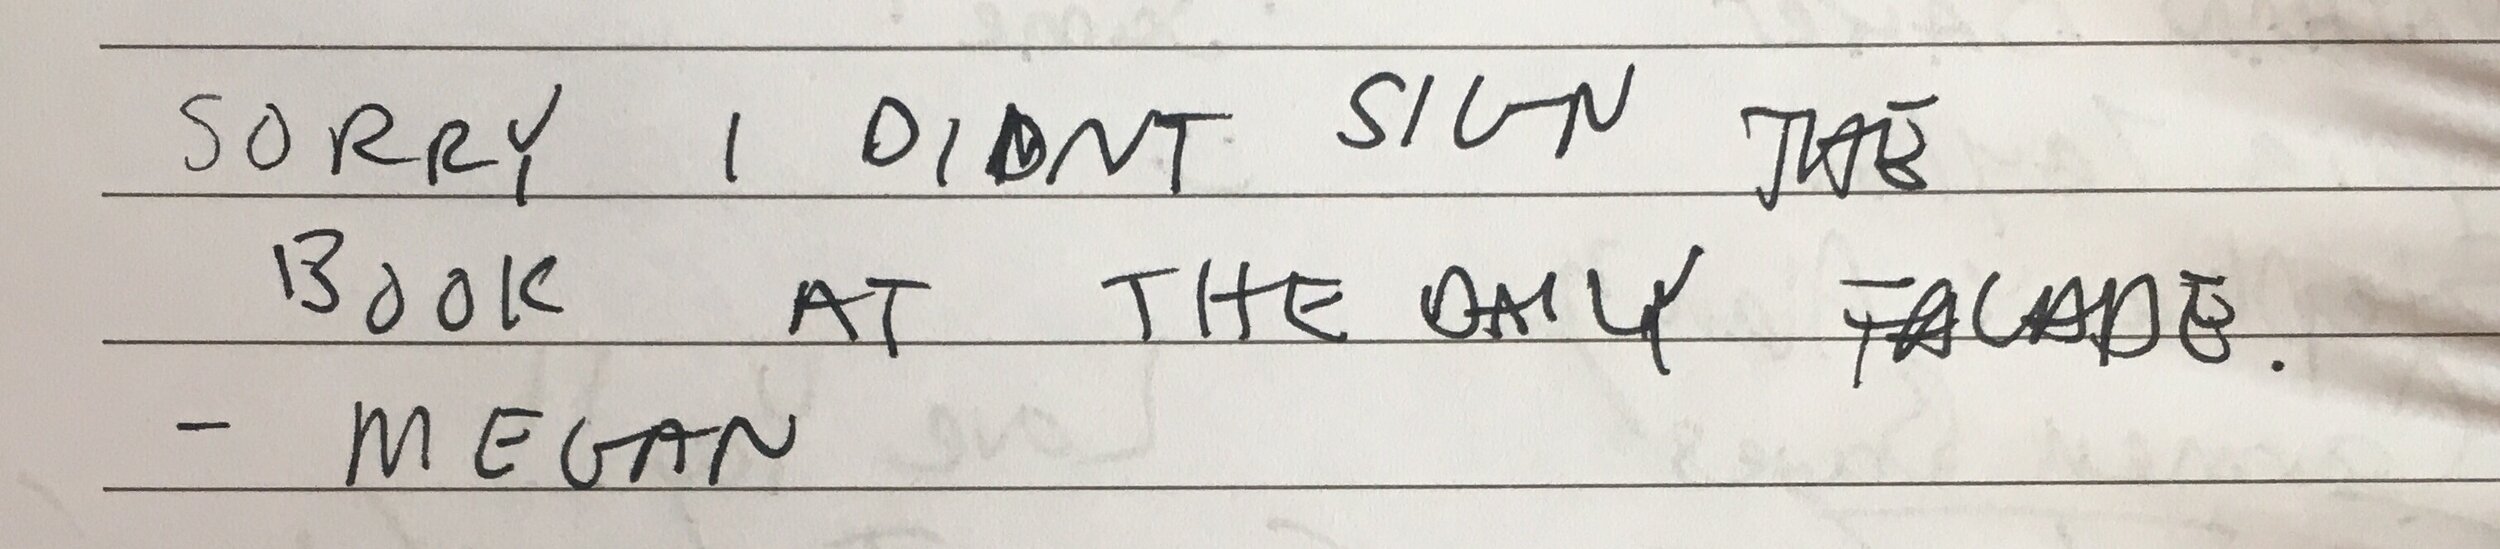 SORRY I DIDNT SIGN THE
BOOK AT THE DAILY FACADE.
- MEGAN